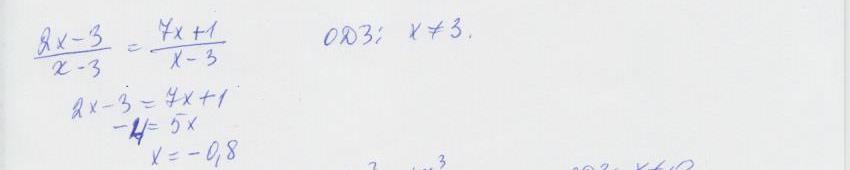 (2x-3)/(x-3) = (7x+1)/(x-3)    ОДЗ: x ≠ 3.
2x-3 = 7x+1
-4 = 5x
x = -0,8